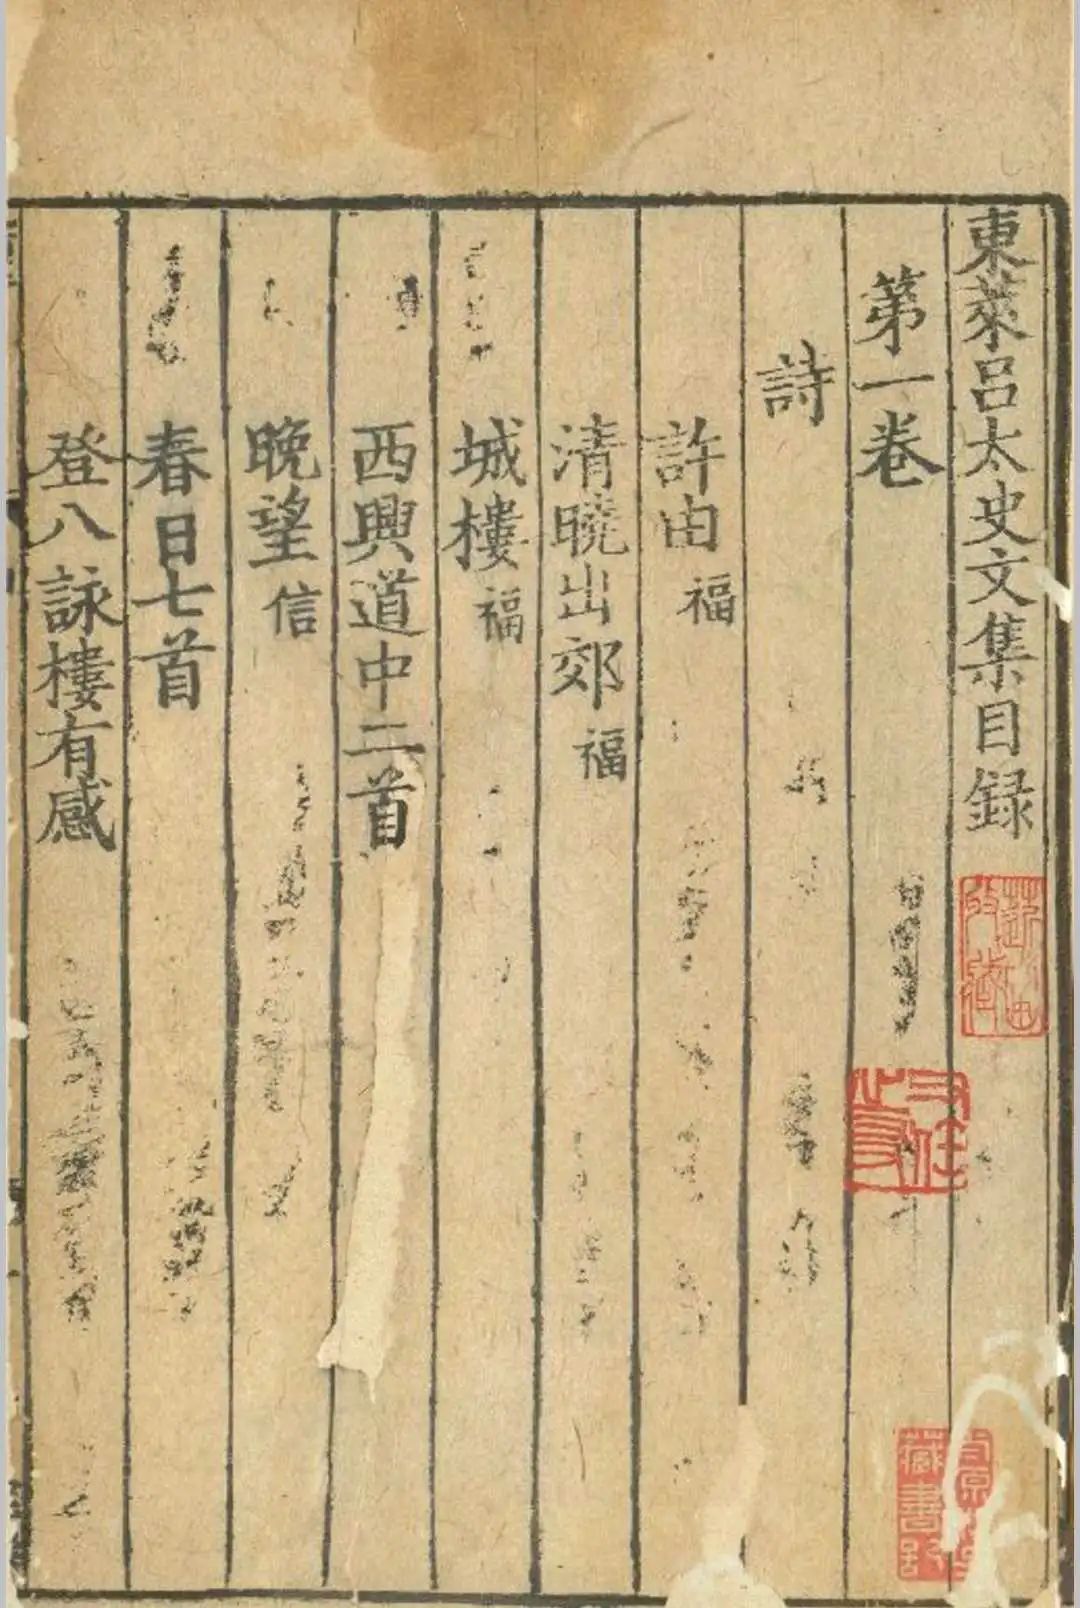 東萊吕太史文集目録
第一卷
詩
許由福
清曉出郊福
城樓福
西興道中二首
晩望信
春日七首
登八詠樓有感
藏書記